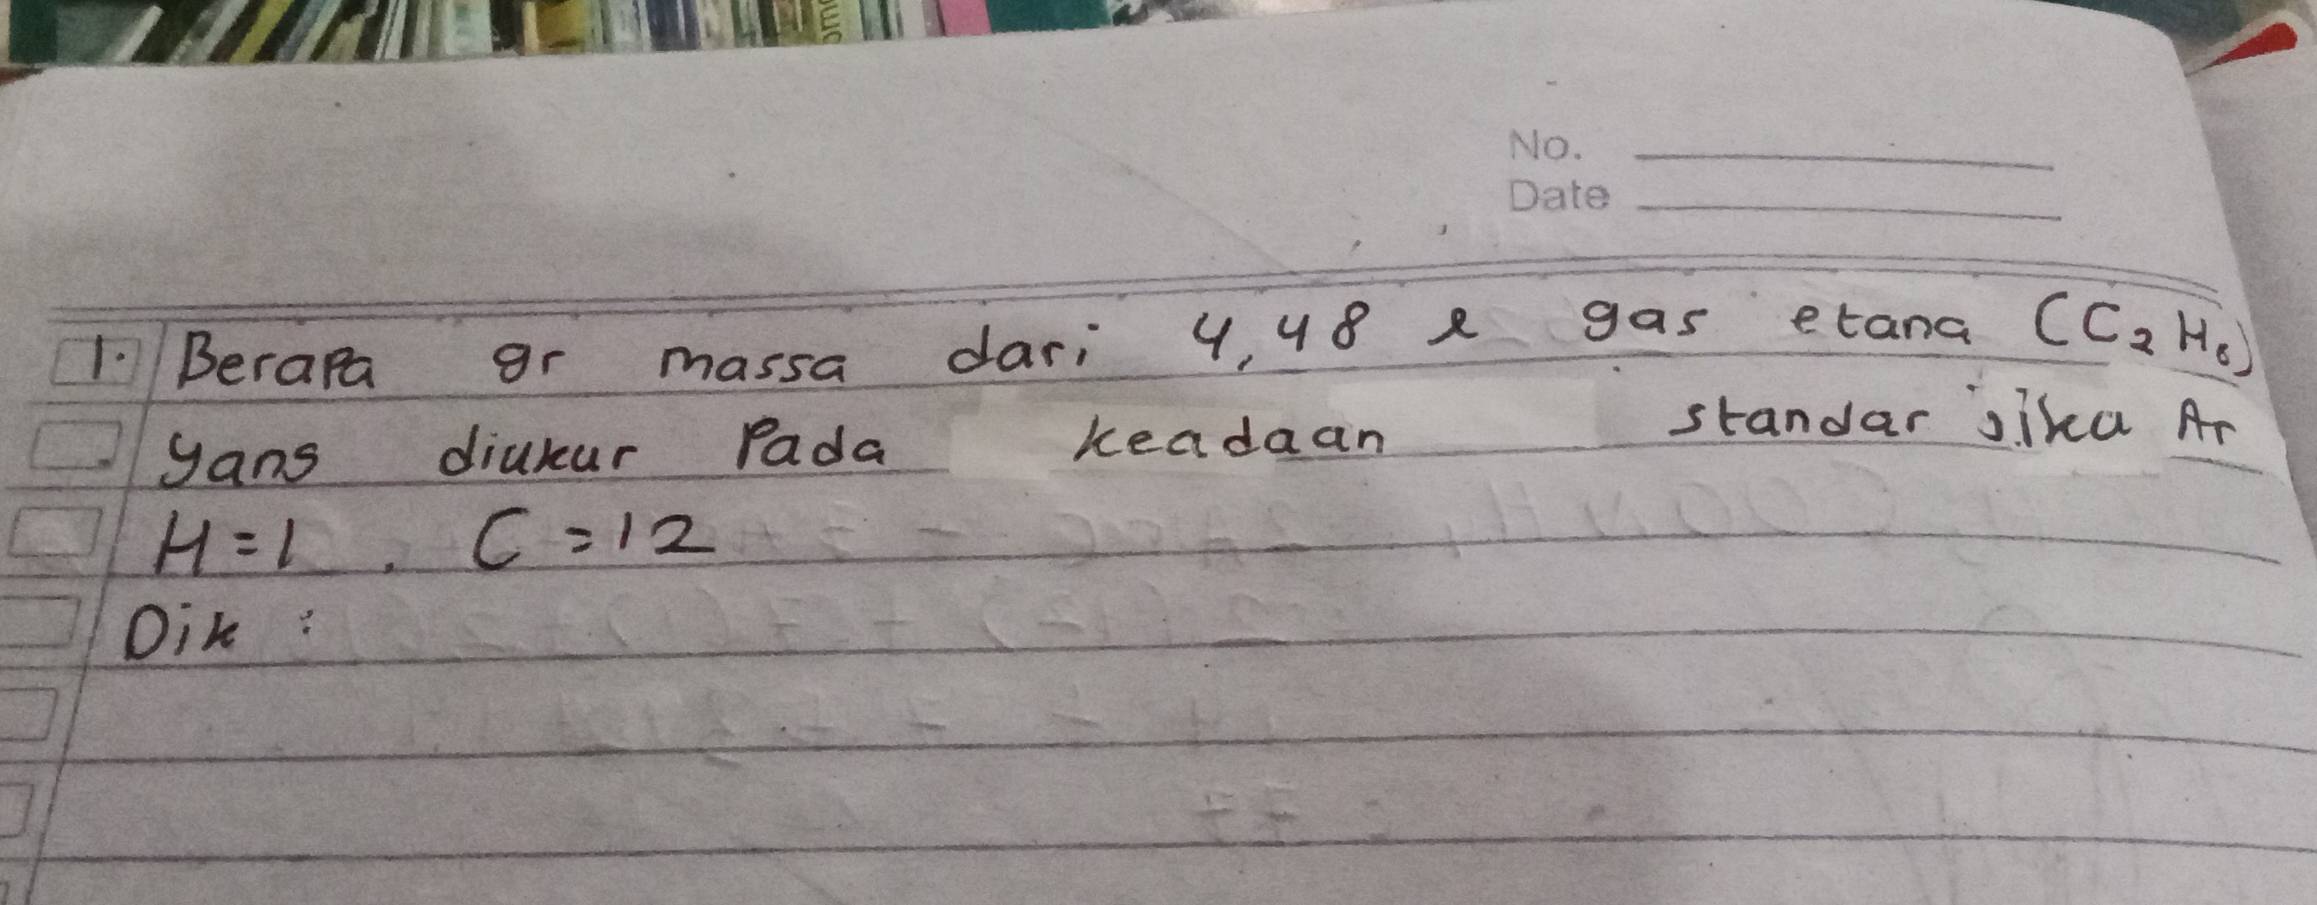 No.
Date
1. Berapa gr massa dari 4,48 l gas etana (C₂H₆)
yang diukur Pada keadaan standar jika Ar
H = 1 , C = 12
Dik :